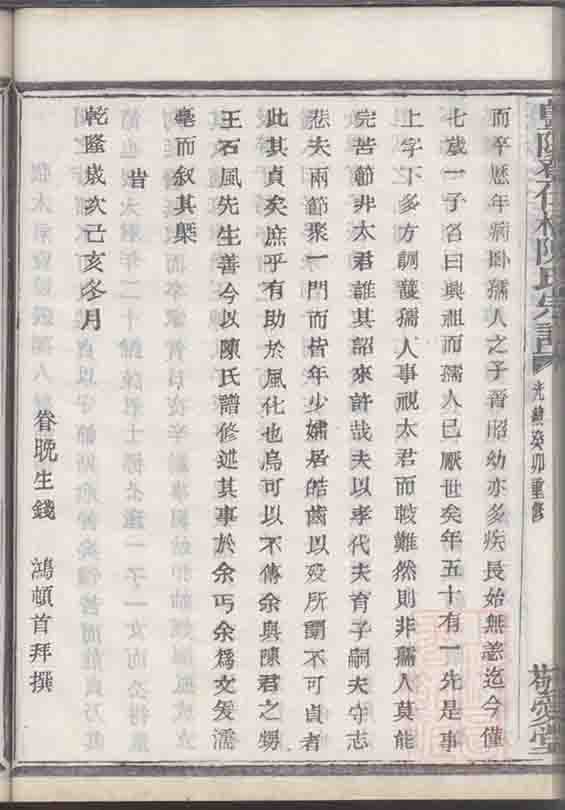 而卒歷年病卧孺人之子晋昭幼亦多疾長始無恙迄今僅
七歲一子名曰興祖而孺人已厭世矣年五十有一先是事
上字下多方訓護孺人事視太君而較難然則非孺人莫能
完苦節非太君誰其詔來許哉夫以孝代夫育子嗣夫守志
悲夫兩節聚一門而皆年少孀居皓齒以歿所謂不可貞者
此其貞矣庶乎有助於風化也烏可以不傳余與陳君之甥
王石風先生善今以陳氏譜修述其事於余丐余爲文爰濡
毫而叙其槩
旹
乾隆歲次己亥冬月
眷晚生錢 鴻頓首拜撰
陳氏宗譜
光緒癸卯重修
敬愛堂